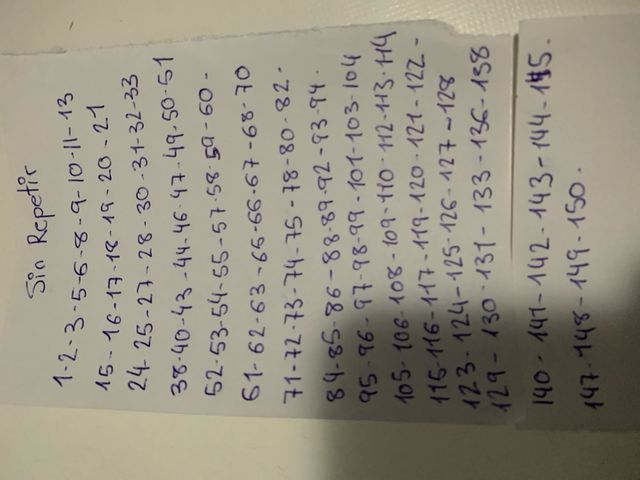 Sin Repetir
1-2-3-5-6-8-9-10-11-13
15-16-17-18-19-20-21
24-25-27-28-30-31-32-33
38-40-43-44-46-47-49-50-51
52-53-54-55-57-58-59-60-
61-62-63-65-66-67-68-70
71-72-73-74-75-78-80-82-
84-85-86-88-89-92-93-94.
95-96-97-98-99-101-103-104
105-106-108-109-110-112-113-114
115-116-117-119-120-121-122-
123-124-125-126-127-128
129-130-131-133-136-138
140-141-142-143-144-145.
147-148-149-150.